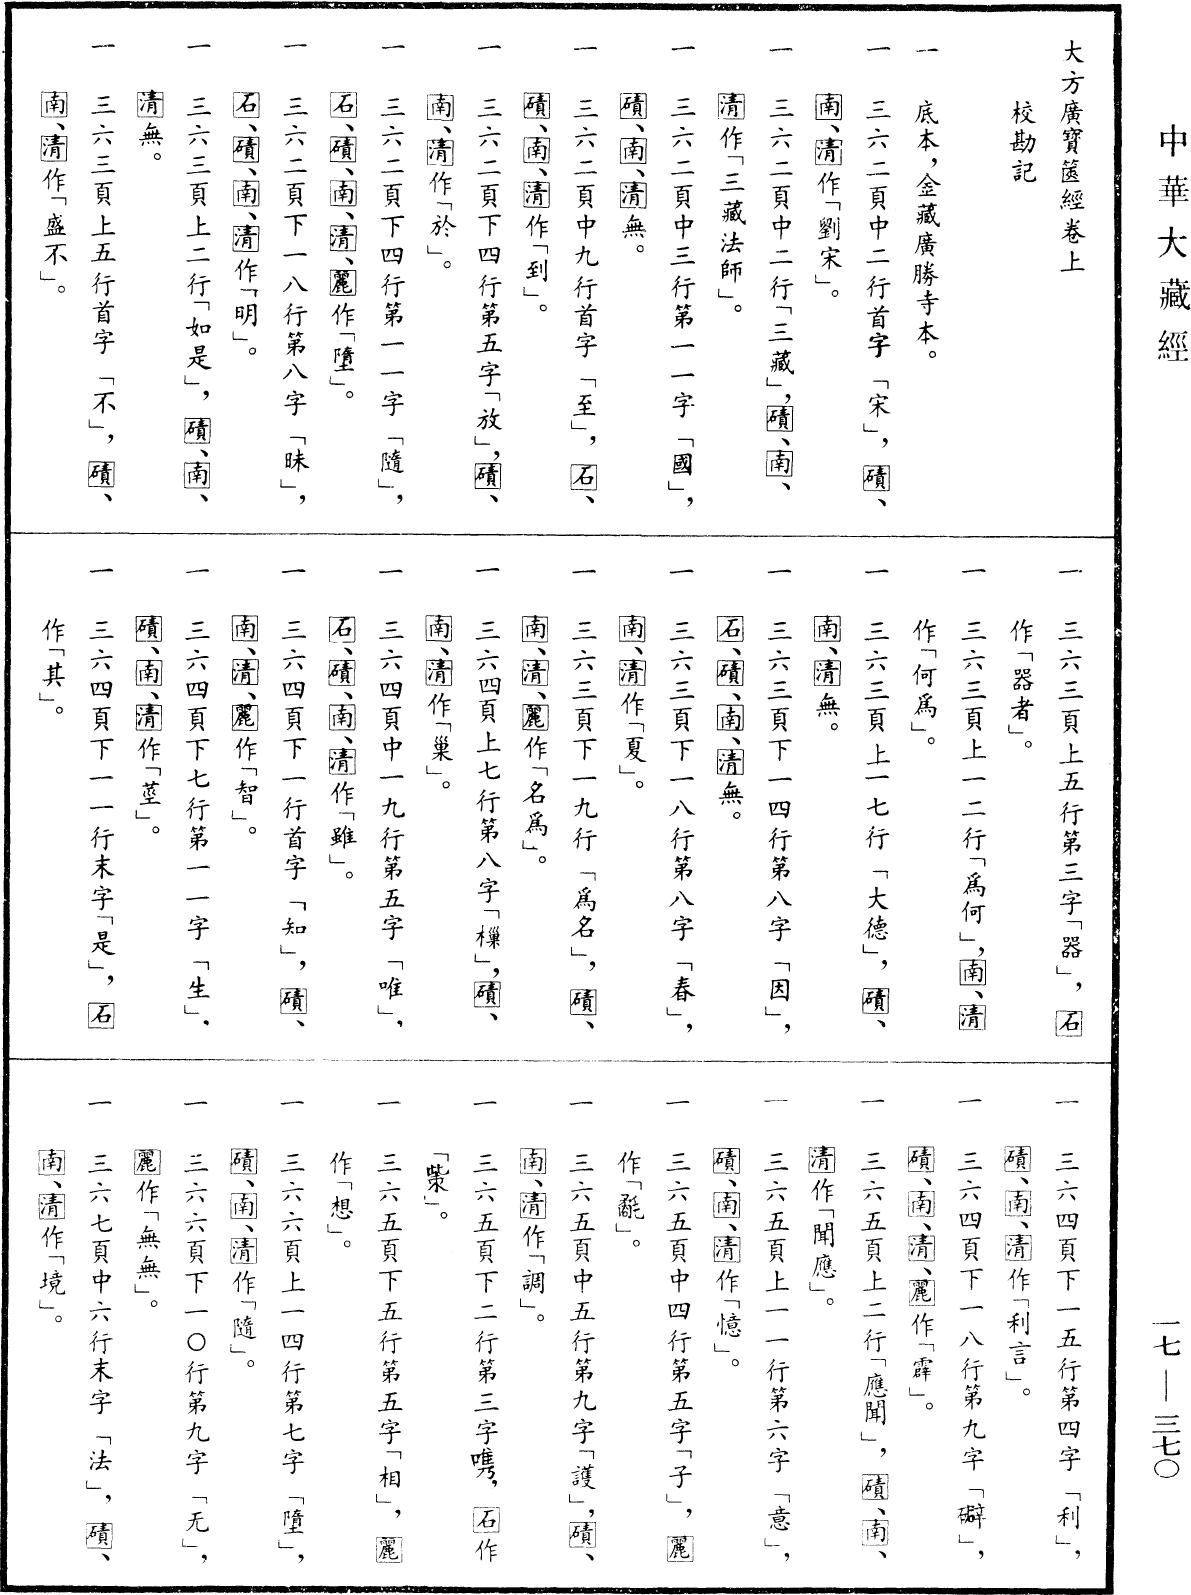 中華大藏經
一七—三七〇
大方廣寶篋經卷上
校勘記
一　底本，金藏廣勝寺本。
一　三六二頁中二行首字「宋」，磧、
南、清作「劉宋」。
一　三六二頁中二行「三藏」，磧、南、
清作「三藏法師」。
一　三六二頁中三行第一一字「國」，
磧、南、清無。
一　三六二頁中九行首字「至」，石、
磧、南、清作「到」。
一　三六二頁下四行第五字「放」，磧、
南、清作「於」。
一　三六二頁下四行第一一字「隨」，
石、磧、南、清、麗作「墮」。
一　三六二頁下一八行第八字「昧」，
石、磧、南、清作「明」。
一　三六三頁上二行「如是」，磧、南、
清無。
一　三六三頁上五行首字「不」，磧、
南、清作「盛不」。
一　三六三頁上五行第三字「器」，石
作「器者」。
一　三六三頁上一二行「爲何」，南、清
作「何爲」。
一　三六三頁上一七行「大德」，磧、
南、清無。
一　三六三頁下一四行第八字「因」，
石、磧、南、清無。
一　三六三頁下一八行第八字「春」，
南、清作「夏」。
一　三六三頁下一九行「爲名」，磧、
南、清、麗作「名爲」。
一　三六四頁上七行第八字「樔」，磧、
南、清作「巢」。
一　三六四頁中一九行第五字「唯」，
石、磧、南、清作「雖」。
一　三六四頁下一行首字「知」，磧、
南、清、麗作「智」。
一　三六四頁下七行第一一字「生」，
磧、南、清作「莖」。
一　三六四頁下一一行末字「是」，石
作「其」。
一　三六四頁下一五行第四字「利」，
磧、南、清作「利言」。
一　三六四頁下一八行第九字「礔」，
磧、南、清、麗作「霹」。
一　三六五頁上二行「應聞」，磧、南、
清作「聞應」。
一　三六五頁上一一行第六字「意」，
磧、南、清作「憶」。
一　三六五頁中四行第五字「子」，麗
作「氎」。
一　三六五頁中五行第九字「護」，磧、
南、清作「調」。
一　三六五頁下二行第三字，石作
「㭰」。
一　三六五頁下五行第五字「相」，麗
作「想」。
一　三六六頁上一四行第七字「墮」，
磧、南、清作「隨」。
一　三六六頁下一〇行第九字「无」，
麗作「無無」。
一　三六七頁中六行末字「法」，磧、
南、清作「境」。